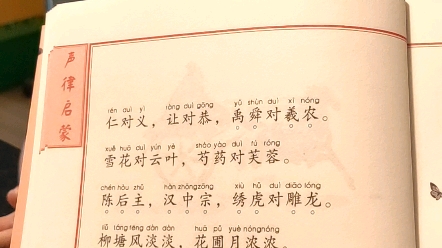 声律启蒙
rén duì yì ràng duì gōng yǔ shùn duì xī nóng
仁对义，让对恭，禹舜对羲农。
xuě huā duì yún yè sháo yào duì fú róng
雪花对云叶，芍药对芙蓉。
chén hòu zhǔ hàn zhōng zōng xiù hǔ duì diāo lóng
陈后主，汉中宗，绣虎对雕龙。
liǔ táng fēng dàn dàn huā pǔ yuè nóng nóng
柳塘风淡淡，花圃月浓浓。